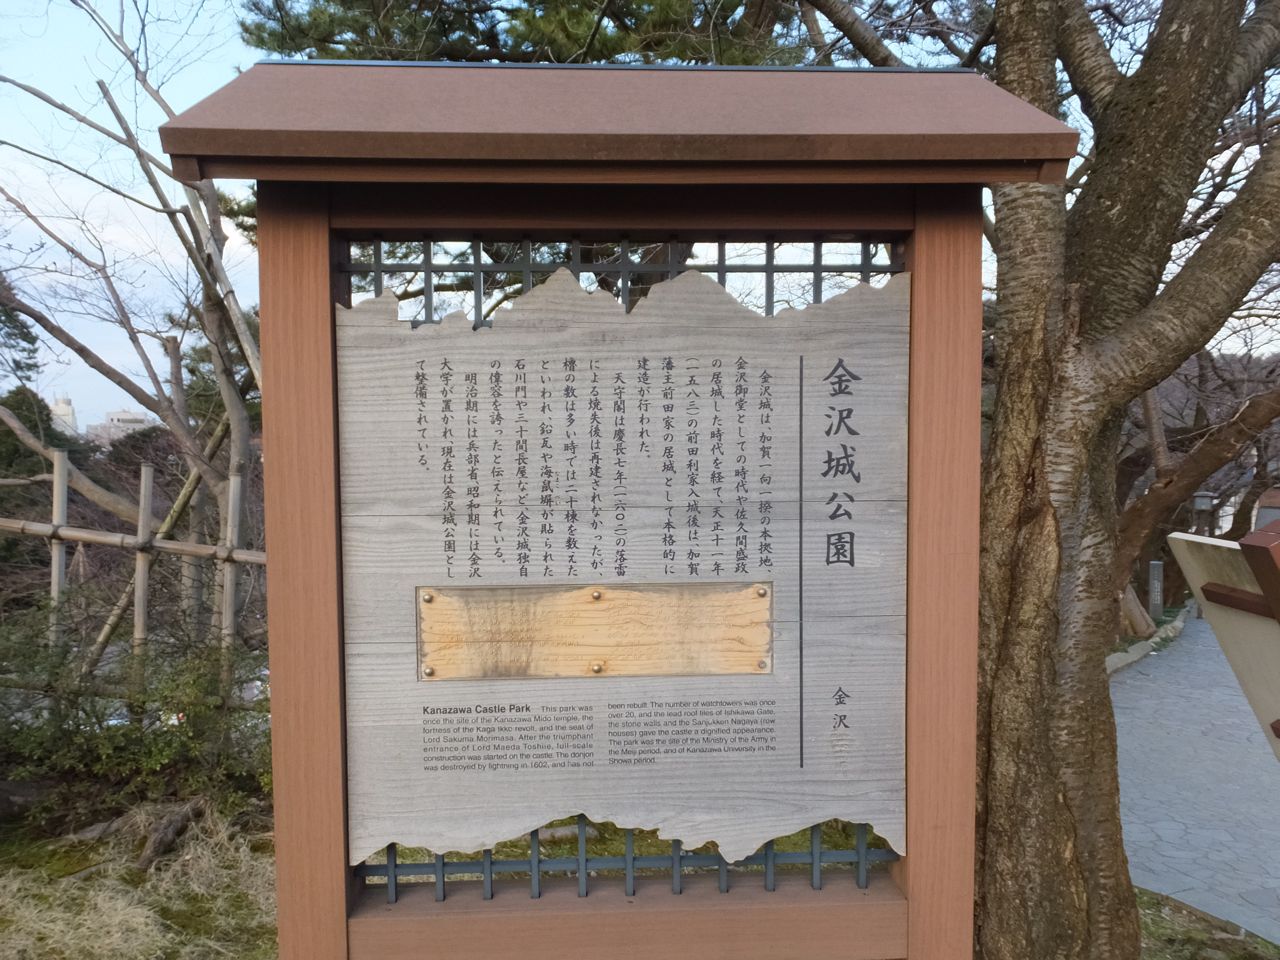 金沢城公園
金沢
金沢城は、加賀一向一揆の本拠地、
金沢御堂としての時代や佐久間盛政
の居城した時代を経て、天正十一年
（一五八三）の前田利家入城後は、加賀
藩主前田家の居城として本格的に
建造が行われた。
天守閣は慶長七年（一六〇二）の落雷
による焼失後は再建されなかったが、
櫓の数は多い時では二十棟を数えた
といわれ、鉛瓦や海鼠塀が貼られた
石川門や三十間長屋など、金沢城独自
の偉容を誇ったと伝えられている。
明治期には兵部省、昭和期には金沢
大学が置かれ、現在は金沢城公園とし
て整備されている。
Kanazawa Castle Park This park was
once the site of the Kanazawa Mido temple, the
fortress of the Kaga Ikko revolt, and the seat of
Lord Sakuma Morimasa. After the triumphant
entrance of Lord Maeda Toshiie, full-scale
construction was started on the castle. The donjon
was destroyed by lightning in 1602, and has not
been rebuilt. The number of watchtowers was once
over 20, and the lead roof tiles of Ishikawa Gate,
the stone walls and the Sanjukken Nagaya (row
houses) gave the castle a dignified appearance.
The park was the site of the Ministry of the Army in
the Meiji period, and of Kanazawa University in the
Showa period.